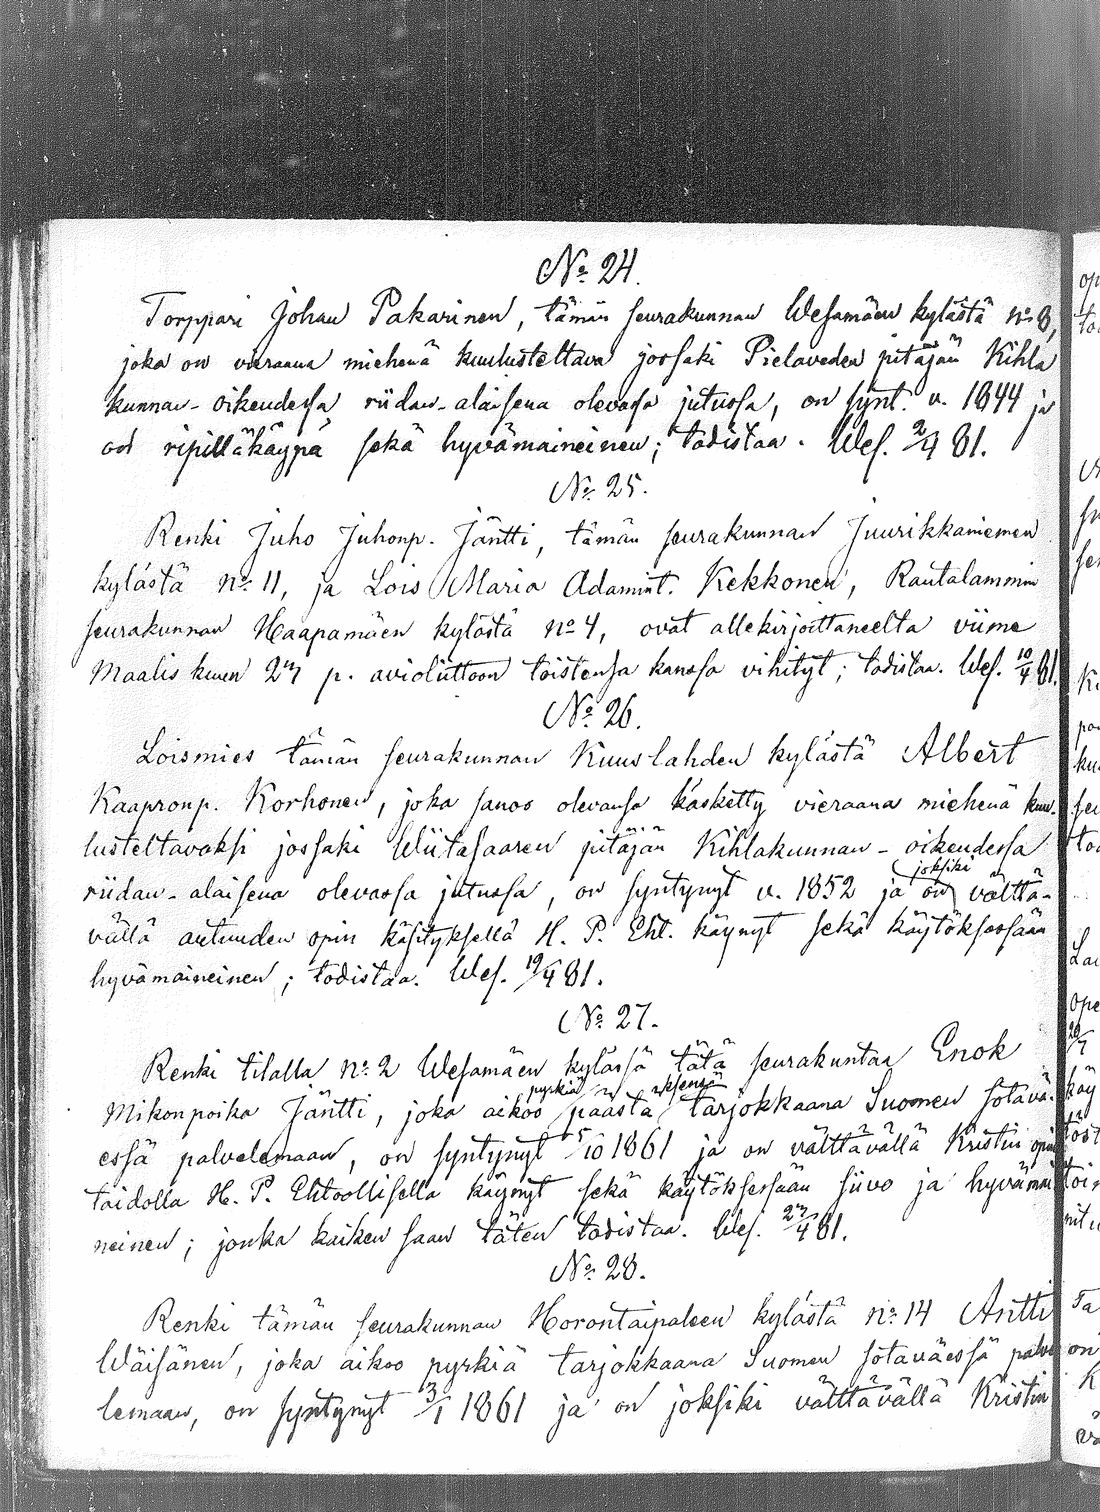 № 24.
Torppari Johan Pakarinen, tämän seurakunnan Wesamäen kylästä no 8,
joka on vieraana miehenä kuulusteltava jossaki Pielaveden pitäjän Kihla
kunnan-oikeudessa riidan-alaisena olevassa jutussa, on synt. v. 1844 ja
on ripilläkäypä sekä hyvämaineinen; todistaa. Wes. 2/4 81.
№ 25.
Renki Juho Juhonp. Jäntti, tämän seurakunnan Juurikkaniemen
kylästä no 11, ja Lois Maria Adamint. Kekkonen, Rautalammin
seurakunnan Haapamäen kylästä no 4, ovat allekirjoittaneelta viime
Maaliskuun 27 p. avioliittoon toistensa kanssa vihityt; todistaa. Wes. 10/4 81.
№ 26.
Loismies tämän seurakunnan Kuuslahden kylästä Albert
Kaapronp. Korhonen, joka sanoo olevansa käsketty vieraana miehenä kuu-
lusteltavaksi jossaki Wiitasaaren pitäjän Kihlakunnan-oikeudessa
riidan-alaisena olevassa jutussa, on syntynyt v. 1852 ja on joksiki välttä-
vällä autuuden opin käsityksellä H. P. Eht. käynyt sekä käytöksessään
hyvämaineinen; todistaa. Wes. 19/4 81.
№ 27.
Renki tilalla no 2 Wesamäen kylässä tätä seurakuntaa Enok
Mikonpoika Jäntti, joka aikoo pyrkiä päästä tarjokkaana Suomen sotavä-
essä palvelemaan, on syntynyt 5/10 1861 ja on välttävällä Kristin opin
taidolla H. P. Ehtoollisella käynyt sekä käytöksessään siivo ja hyvämai
neinen; jonka kaiken saan täten todistaa. Wes. 27/4 81.
№ 28.
Renki tämän seurakunnan Horontaipaleen kylästä no 14 Antti
Wäisänen, joka aikoo pyrkiä tarjokkaana Suomen sotaväessä palve
lemaan, on syntynyt 3/1 1861 ja on joksiki välttävällä Kristin